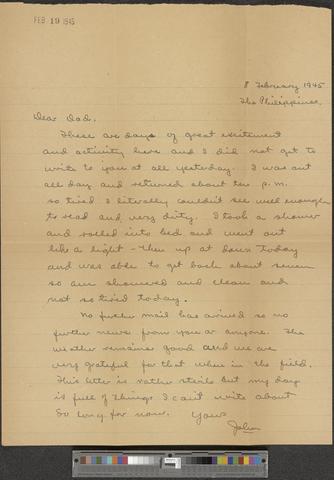 FEB 19 1945
8 February 1945
The Philippines.
Dear Dad,
These are days of great excitement
and activity here and I did not get to
write to you at all yesterday. I was out
all day and returned about ten p.m.
so tired I literally couldn't see well enough
to read and very dirty. I took a shower
and rolled into bed and went out
like a light - then up at dawn today
and was able to get back about seven
so am showered and clean and
not so tired today.
No further mail has arrived so no
further news from you or anyone. The
weather remains good and we are
very grateful for that when in the field.
This letter is rather sterile but my day
is full of things I can't write about
So long for now. Yours
John